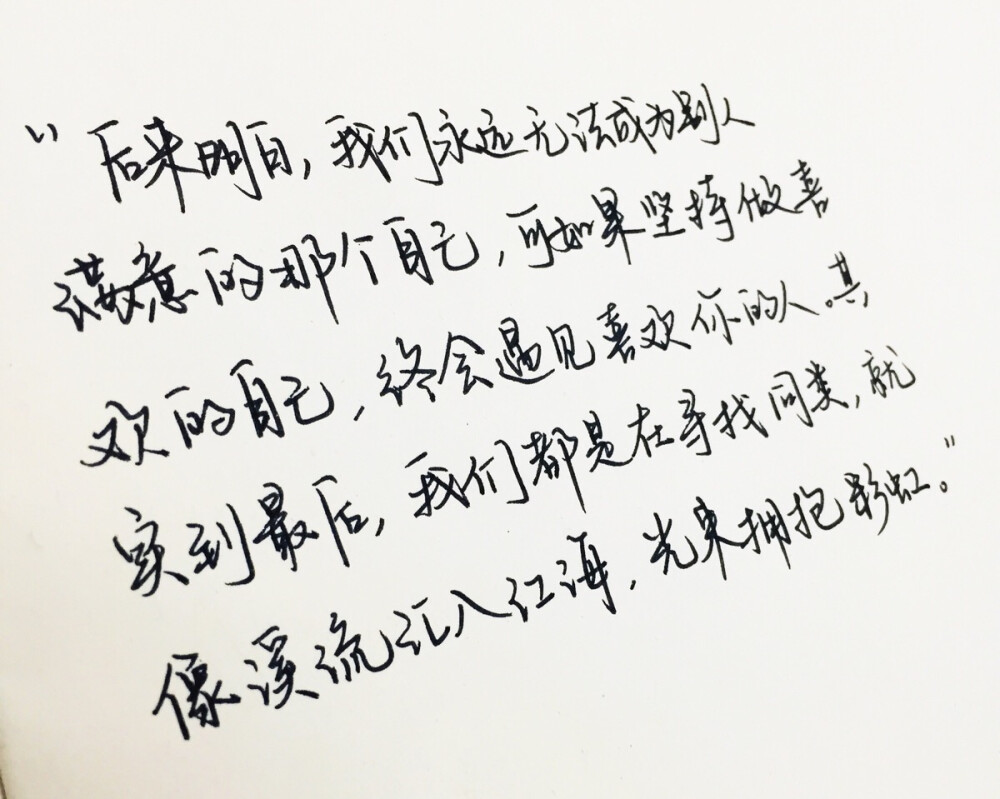 “后来明白，我们永远无法成为别人
满意的那个自己，可如果坚持做喜
欢的自己，终会遇见喜欢你的人。其
实到最后，我们都是在寻找同类，就
像溪流汇入江海，光束拥抱彩虹。”